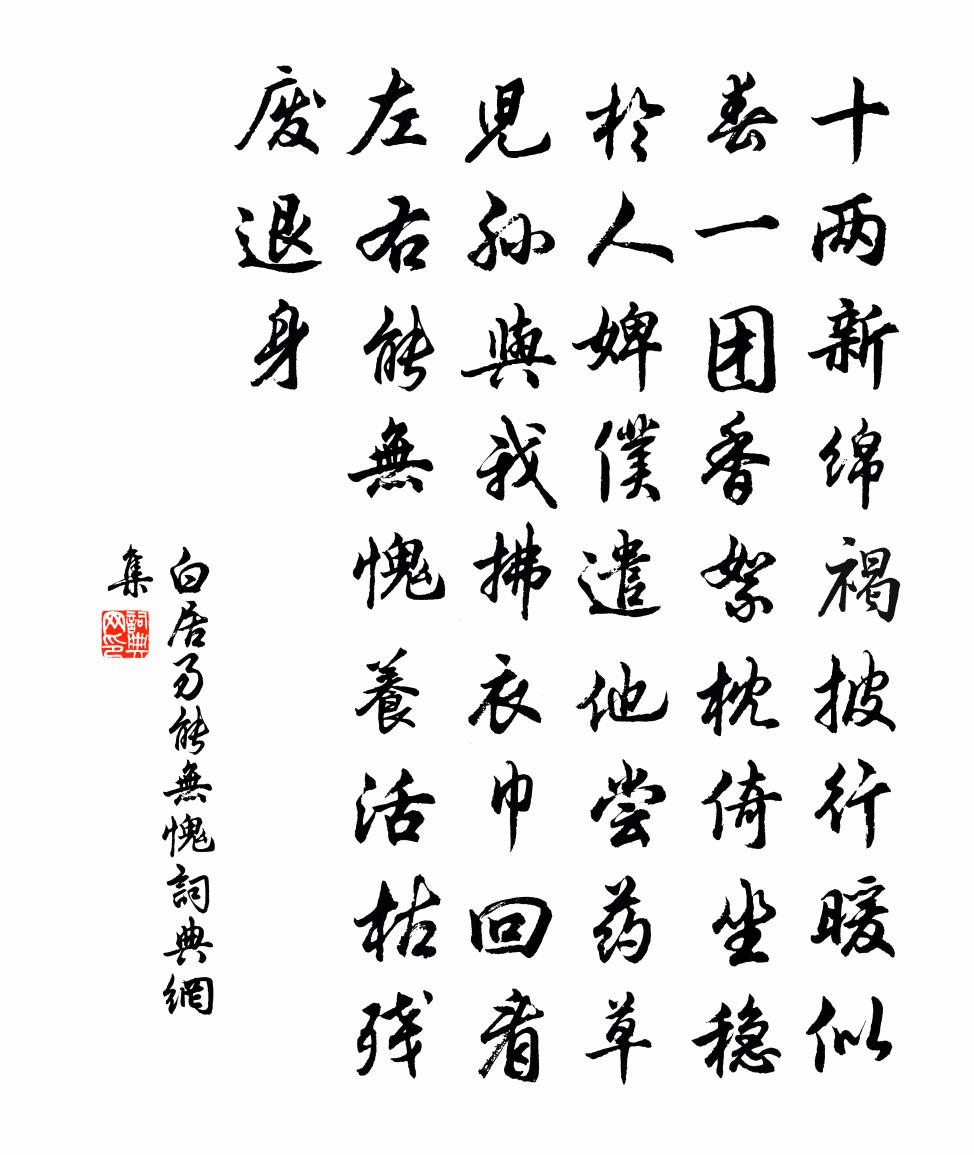 十两新绵褐披行暖似
春一团香絮枕倚坐稳
於人婢僕遣他尝药草
児孙與我拂衣巾回看
左右能無愧養活枯残
废退身
白居易能無愧詞典網
集
詞典网印